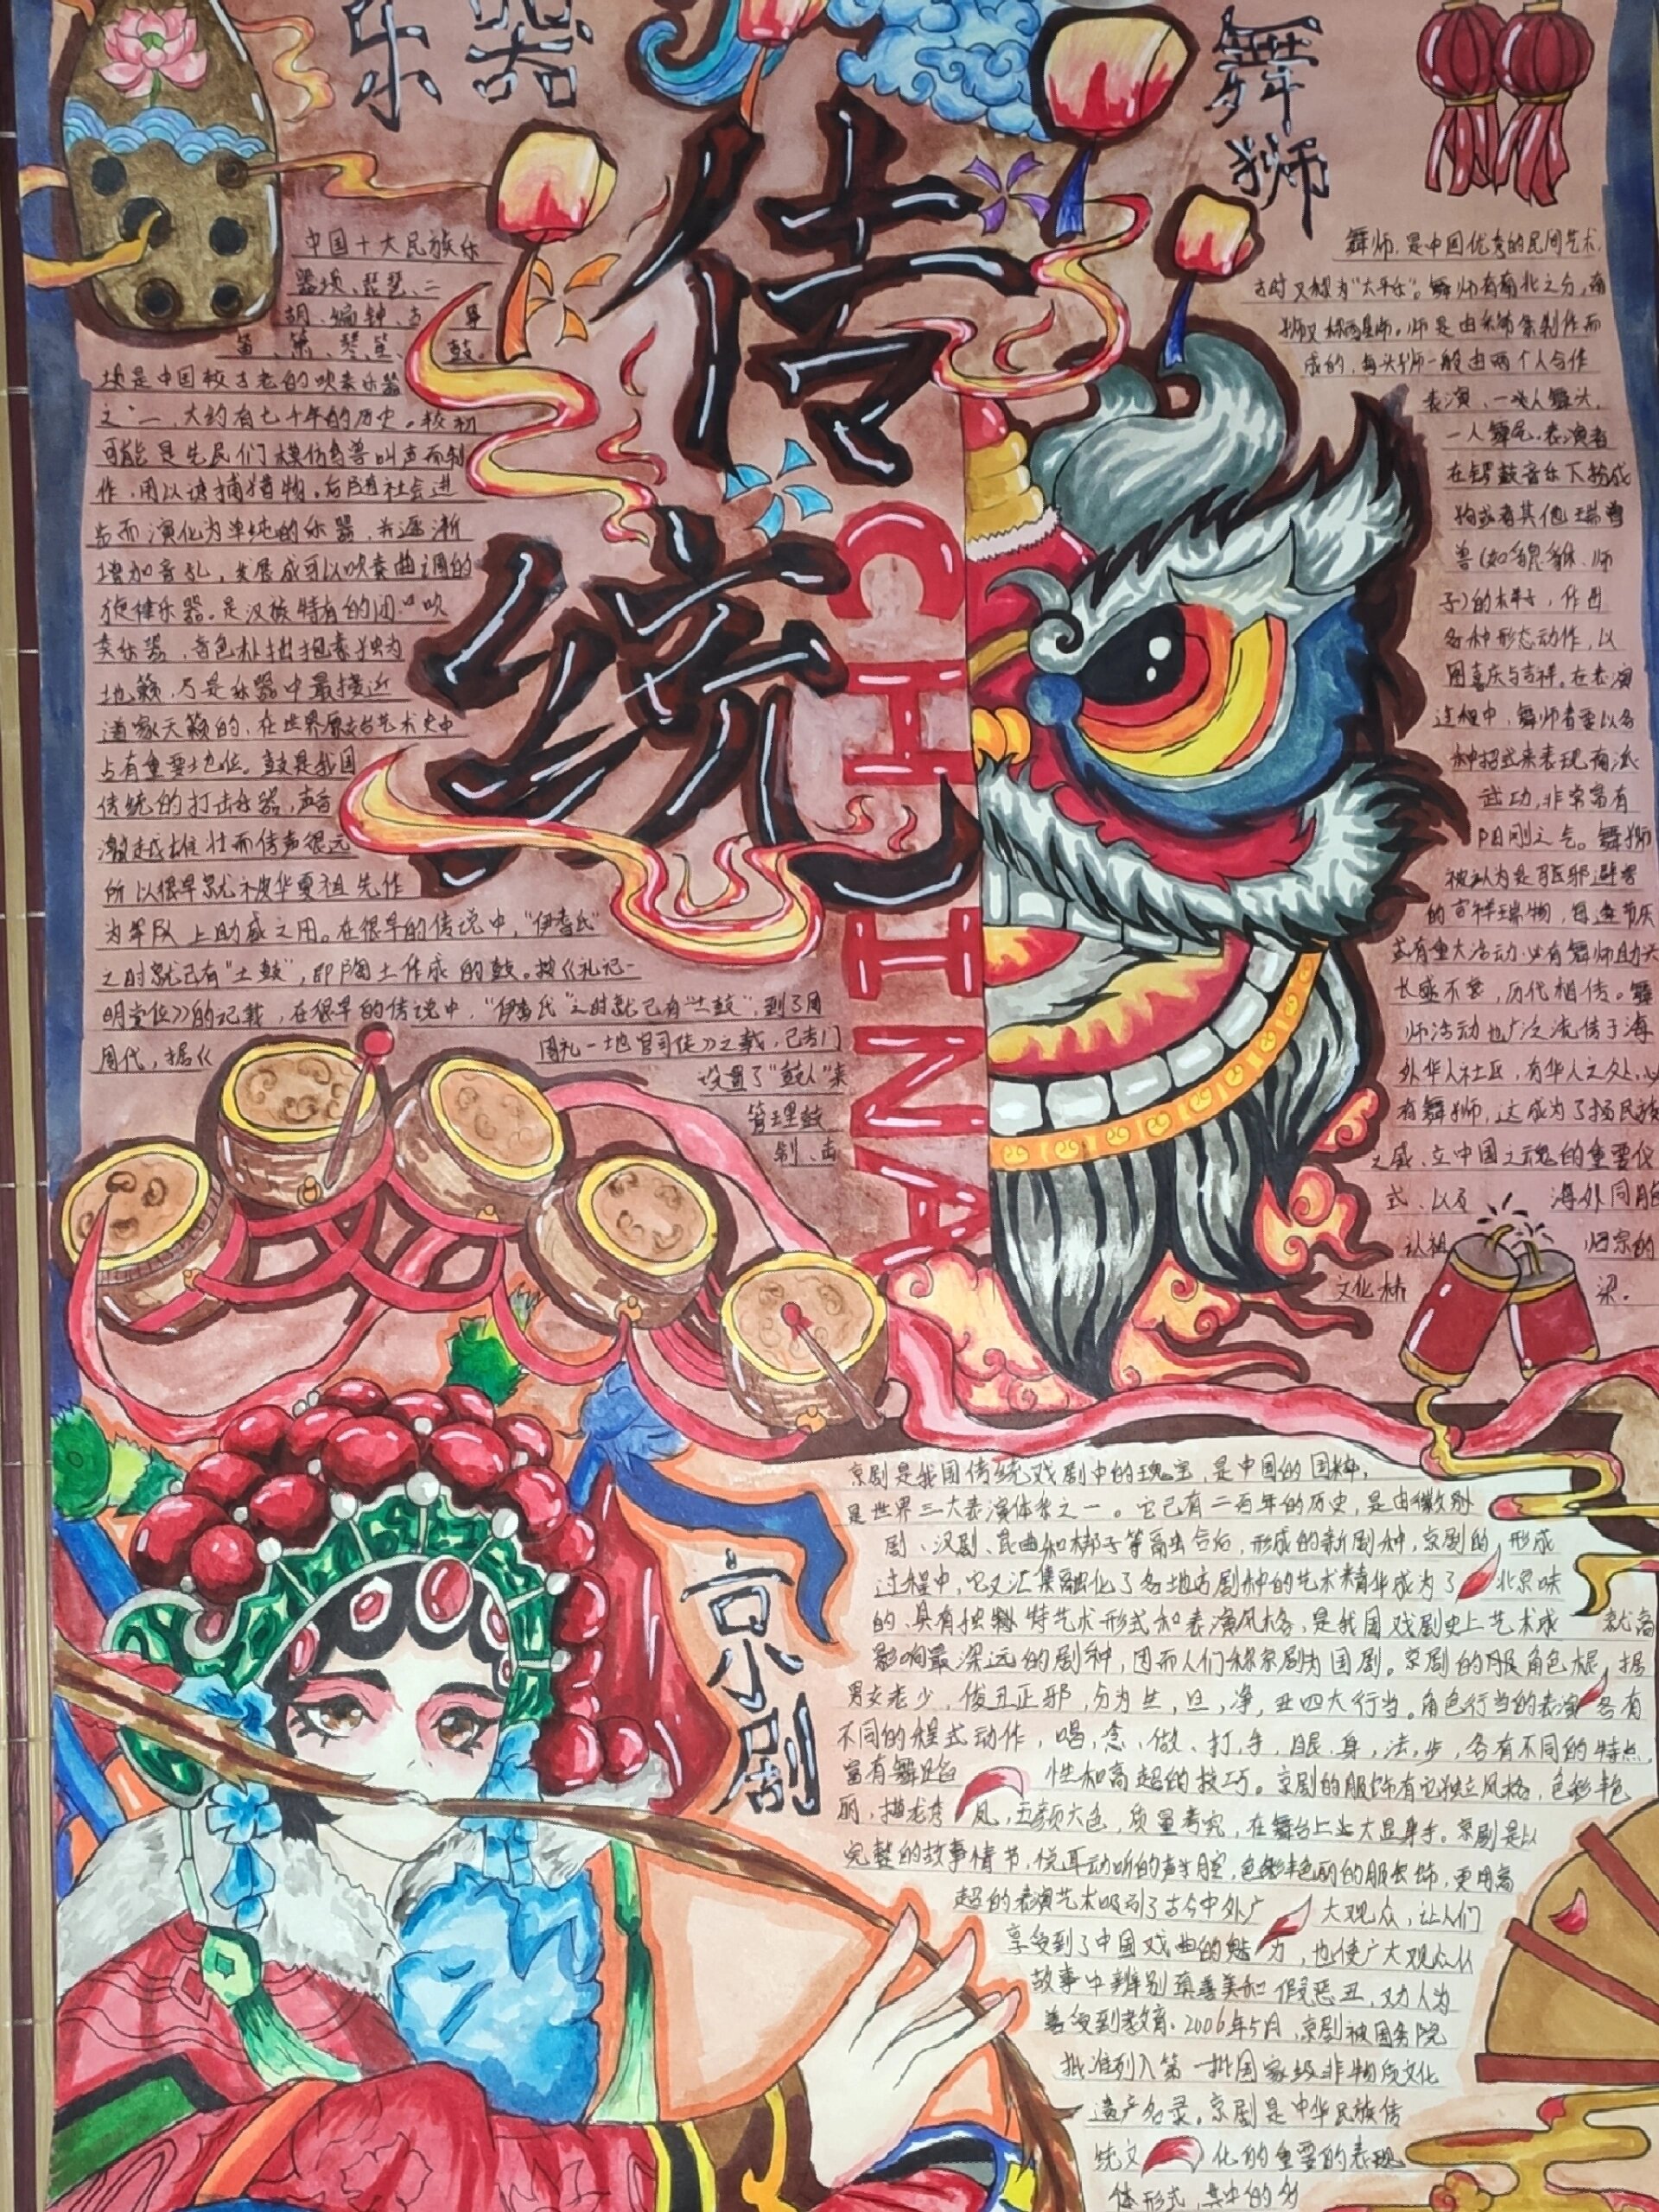 乐器
中国十大民族乐
器埙、琵琶、二
胡、编钟、古 筝
笛、箫、琴、笙、 鼓。
埙是中国较古老的吹奏乐器
之一,大约有七千年的历史。较初
可能是先民们模仿鸟兽叫声而制
作,用以诱捕猎物。后随社会进
步而演化为单纯的乐器,并逐渐
增加音孔,发展成可以吹奏曲调的
旋律乐器。是汉族特有的闭口吹
奏乐器,音色朴拙抱素独为
地籁,乃是乐器中最接近
道家天籁的,在世界原始艺术史中
占有重要地位。鼓是我国
传统的打击乐器,声音
激越雄壮而传声很远
所以很早就被华夏祖先作
为军队上助威之用。在很早的传说中,“伊耆氏”
之时就已有“土鼓”,即陶土作成的鼓。按《礼记-
明堂位》的记载,在很早的传说中,“伊耆氏”之时就已有“土鼓”,到了周
周代,据《 周礼-地官司徒》之载,已专门
设置了“鼓人”来
管理鼓
制、击
传统
CHINA
舞狮
舞师,是中国优秀的民间艺术,
古时又称为“太平乐”。舞师有南北之分,南
狮又称醒师。师是由彩布条制作而
成的,每头师一般由两个人合作
表演,一人舞头,
一人舞尾。表演者
在锣鼓音乐下扮成
狗或者其他瑞兽
兽(如貔貅、师
子)的样子,作出
各种形态动作,以
图喜庆与吉祥。在表演
过程中,舞师者要以各
种招式来表现南派
武功,非常富有
阳刚之气。舞狮
被认为是驱邪避害
的吉祥瑞物,每逢节庆
或有重大活动必有舞师助兴
长盛不衰,历代相传。舞
师活动也广泛流传于海
外华人社区,有华人之处,必
有舞狮,这成为了扬民族
之威、立中国之魂的重要仪
式,以及 海外同胞
认祖 归宗的
文化桥 梁。
京剧
京剧是我国传统戏剧中的瑰宝,是中国的国粹,
是世界三大表演体系之一。它已有二百年的历史,是由徽戏剧
剧、汉剧、昆曲和梆子等融会合后,形成的新剧种,京剧的 形成
过程中,它又汇集融化了各地方剧种的艺术精华成为了 北京味
的、具有独特艺术形式和表演风格,是我国戏剧史上艺术成 就高
影响最深远的剧种,因而人们称京剧为国剧。京剧的角色根 据
男女老少,俊丑正邪,分为生,旦,净,丑四大行当。角色行当的表演 各有
不同的程式动作,唱,念、做、打,手,眼,身,法,步,各有不同的特点,
富有舞蹈 性和高超的技巧。京剧的服饰有它独立风格,色彩丰色
丽,描龙秀 凤,五颜六色,质量考究,在舞台上大显身手。京剧是以
完整的故事情节,悦耳动听的声腔,色彩艳丽的服饰,更用高
超的表演艺术吸引了古今中外广 大观众,让人们
享受到了中国戏曲的魅 力,也使广大观众从
故事中辨别真善美和假恶丑,对人为
善受到教育。2006年5月,京剧被国务院
批准列入第一批国家级非物质文化
遗产名录。京剧是中华民族传
统文 化的重要的表现
体形式,其中的多